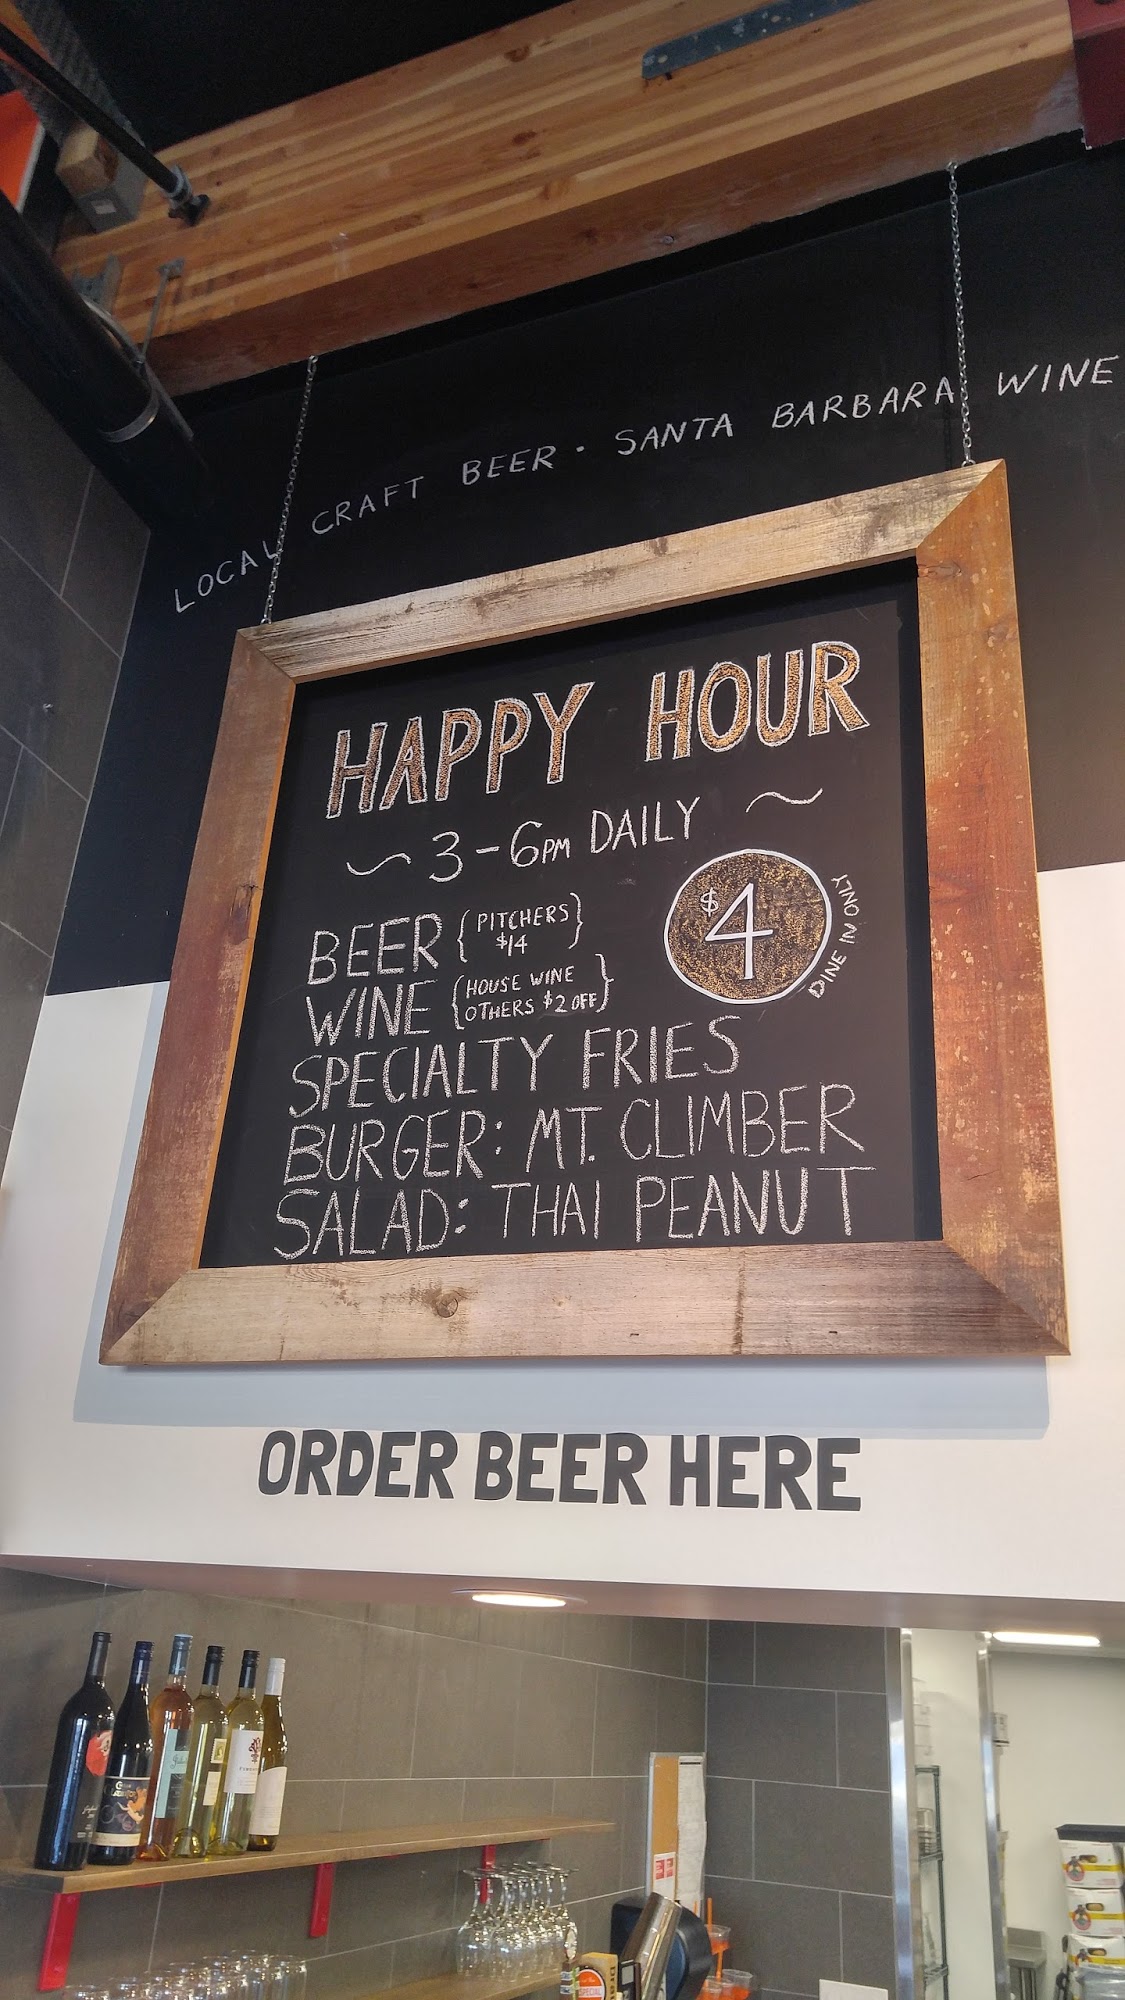 LOCAL CRAFT BEER · SANTA BARBARA WINE
HAPPY HOUR
~ 3-6PM DAILY ~
$4
DINE IN ONLY
BEER {PITCHERS $14}
WINE {HOUSE WINE OTHERS $2 OFF}
SPECIALTY FRIES
BURGER: MT. CLIMBER
SALAD: THAI PEANUT
ORDER BEER HERE